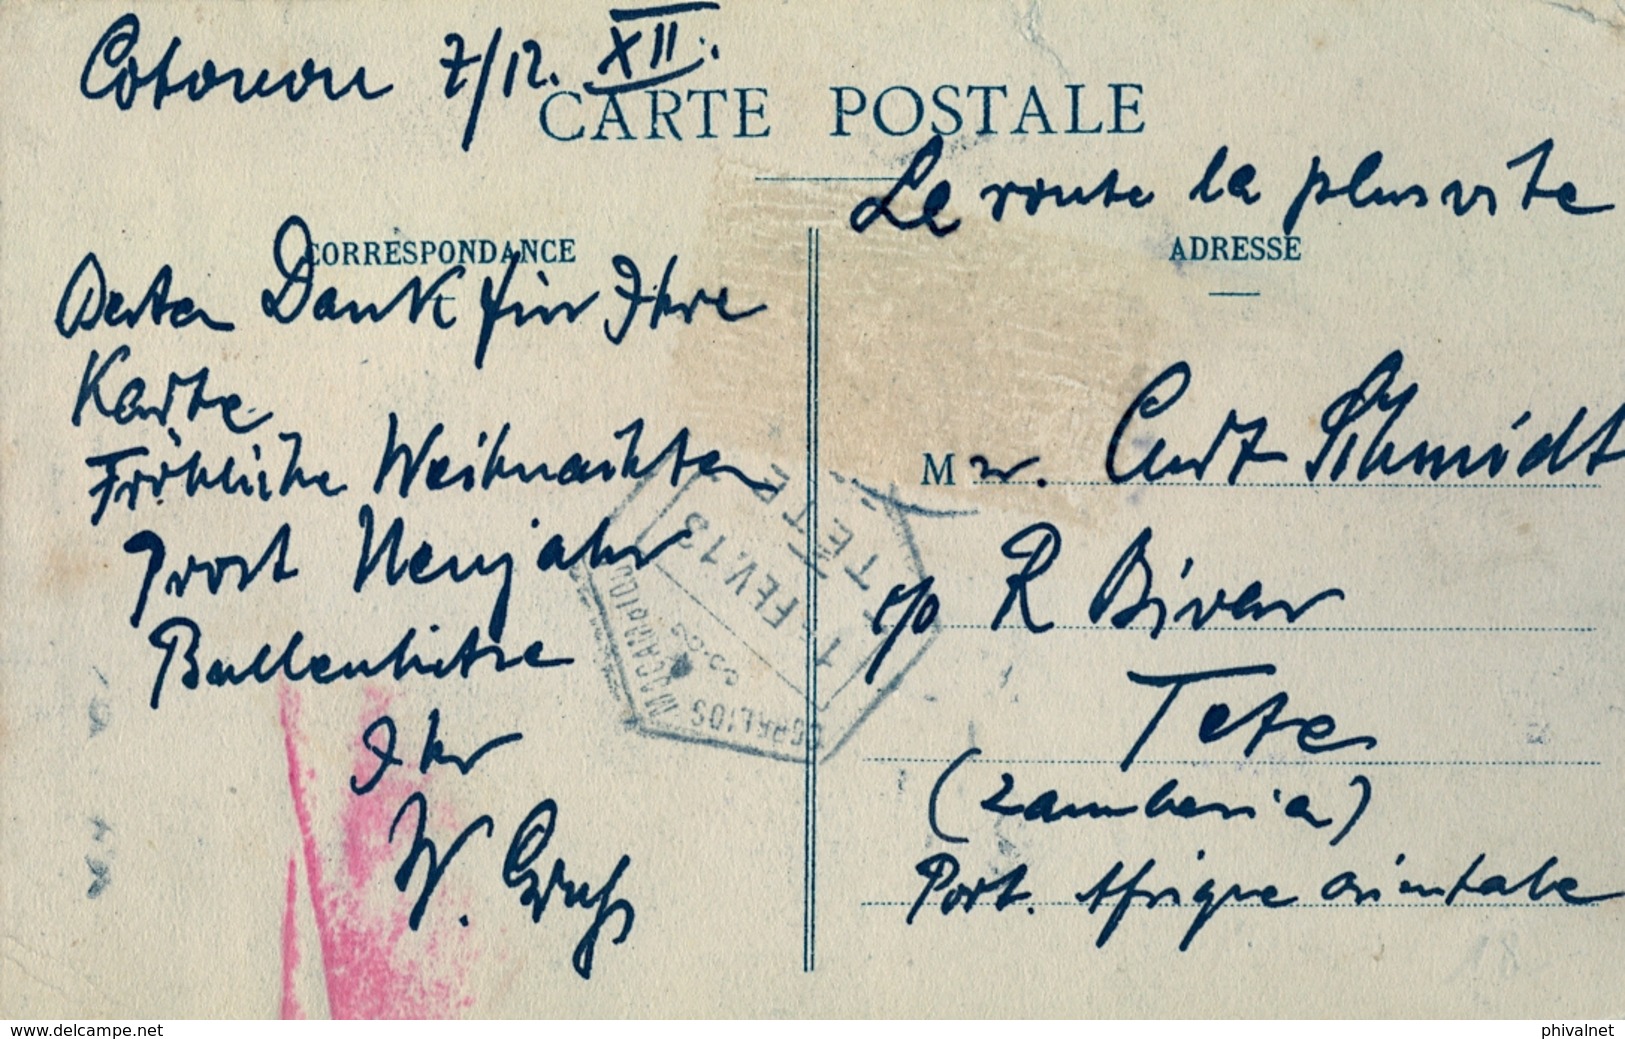 Cotonou 7/12. XII.
CARTE POSTALE
La route la plus vite
CORRESPONDANCE
ADRESSE
Besten Dank für Ihre
Karte
Fröhliche Weihnachten
Prost Neujahr
Ihr
W.
Mr. Curt Schmidt
c/o R
Tete
(Zambesia)
Port. Afrique orientale
CORREIOS MOÇAMBIQUE
FEV. 13
TETE
www.delcampe.net
phivalnet